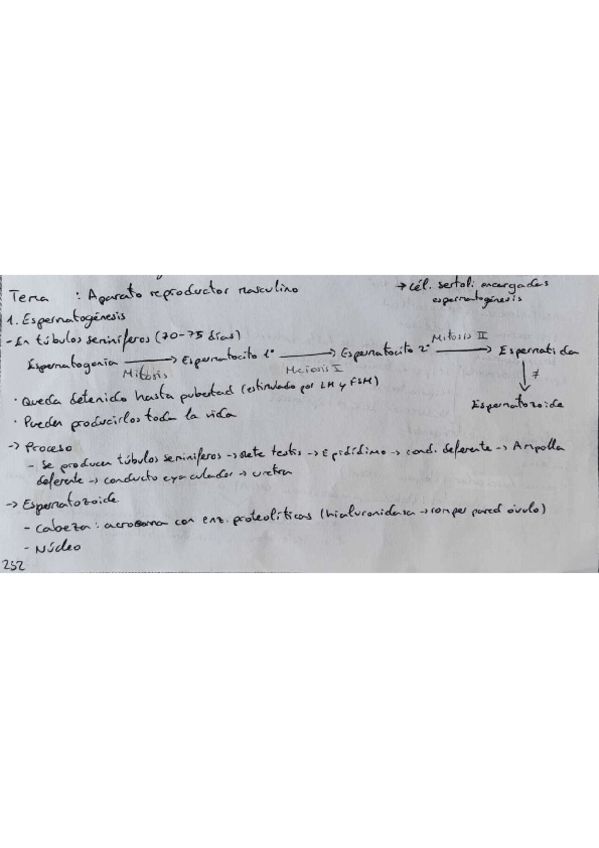 Tema : Aparato reproductor masculino
→ cél. sertoli encargadas espermatogénesis
1. Espermatogénesis
- En túbulos seminíferos (70-75 días)
Espermatogonia → Mitosis Espermatocito 1º → Meiosis I Espermatocito 2º → Mitosis II Espermatida
↓ ≠
Espermatozoide
· Queda detenido hasta pubertad (estimulado por LH y FSH)
· Pueden producirlos toda la vida
→ Proceso
- Se producen túbulos seminíferos → Rete testis → Epidídimo → cond. deferente → Ampolla
deferente → conducto eyaculador → uretra
→ Espermatozoide
- Cabeza: acrosoma con enz. proteolíticas (hialuronidasa → romper pared óvulo)
- Núcleo
252